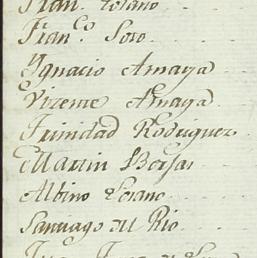 Fran.co Lozano
Fran.co Soto
Ygnacio Amaya
Vizente Amaya
Trinidad Rodriguez
Martin Borjas
Albino Lozano
Santiago del Rio